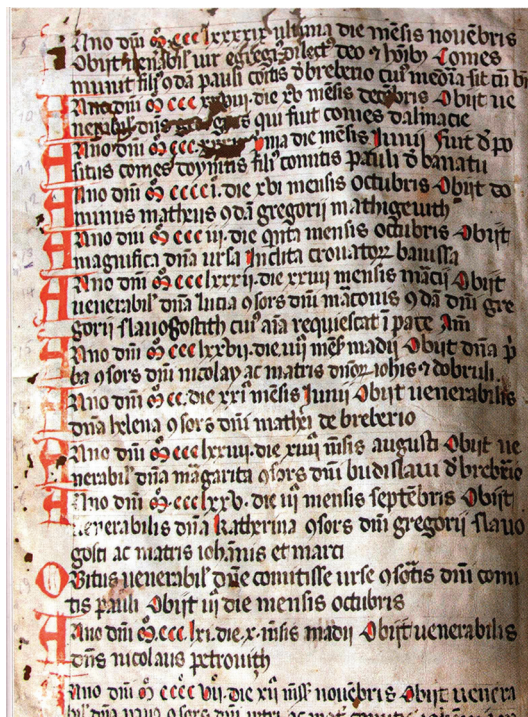 Anno dn̄i m̊ ccc lxxxxix ultima die mēsis nouēbris
Obijt uenabil' uir egregi9 dilect9 deo ⁊ hōib9 Comes
fili9 9dā pauli cōitis d' breberio cui9 sit
Anno dn̄i m̊ ccc die xv mēsis decēbris Obijt ue
nerabil' dn̄s qui fuit comes dalmacie
Anno dn̄i m̊ ccc ma die mēsis Iunij fuit d' po
situs comes doynitis fili9 comitis pauli d' banatu
Anno dn̄i m̊ cccc i. die xvi mensis octubris Obijt do
minus mathijs 9dā gregorij mathigeuith
Anno dn̄i m̊ cccc iii. die qn̄ta mensis octubris Obijt
magnifica dn̄a ursa Inclita crouatoꝝ banissa
Anno dn̄i m̊ ccc lxxxii. die xxuii mensis mācij Obijt
uenerabil' dn̄a lucia 9sors dn̄i māconis 9 dā dn̄i gre
gorij slauogostith cui9 aīa requiescat ī pace Am̄
Anno dn̄i m̊ ccc lxxvii. die uii mēs̄ madij Obijt dn̄a p̄
ba 9sors dn̄i nicolay ac matris dn̄oꝝ iohis ⁊ dobruli
Anno dn̄i m̊ cc. die xxi mēsis Iunii Obijt uenerabilis
dn̄a helena 9sors dn̄i mathei de breberio
Anno dn̄i m̊ ccc lxxiiii. die xiiii m̄sis augusti Obijt ue
nerabil' dn̄a māgarita 9sors dn̄i budislaui d' brebērio
Anno dn̄i m̊ ccc lxxv. die iii mensis septēbris Obijt
uenerabilis dn̄a katherina 9sors dn̄i gregorij slauo
gosti ac matris iohānis et marci
Obitus uenerabil' dn̄e comitisse urse 9sōtis dn̄i comi
tis pauli Obijt iii die mensis octubris
Anno dn̄i m̊ ccc lxi. die x. m̄sis madij Obijt uenerabilis
dn̄s nicolaus petrouith
Anno dn̄i m̊ cccc vii. die xii m̄sis nouēbris Obijt uenera
bil' dn̄a 9sors dn̄i ac